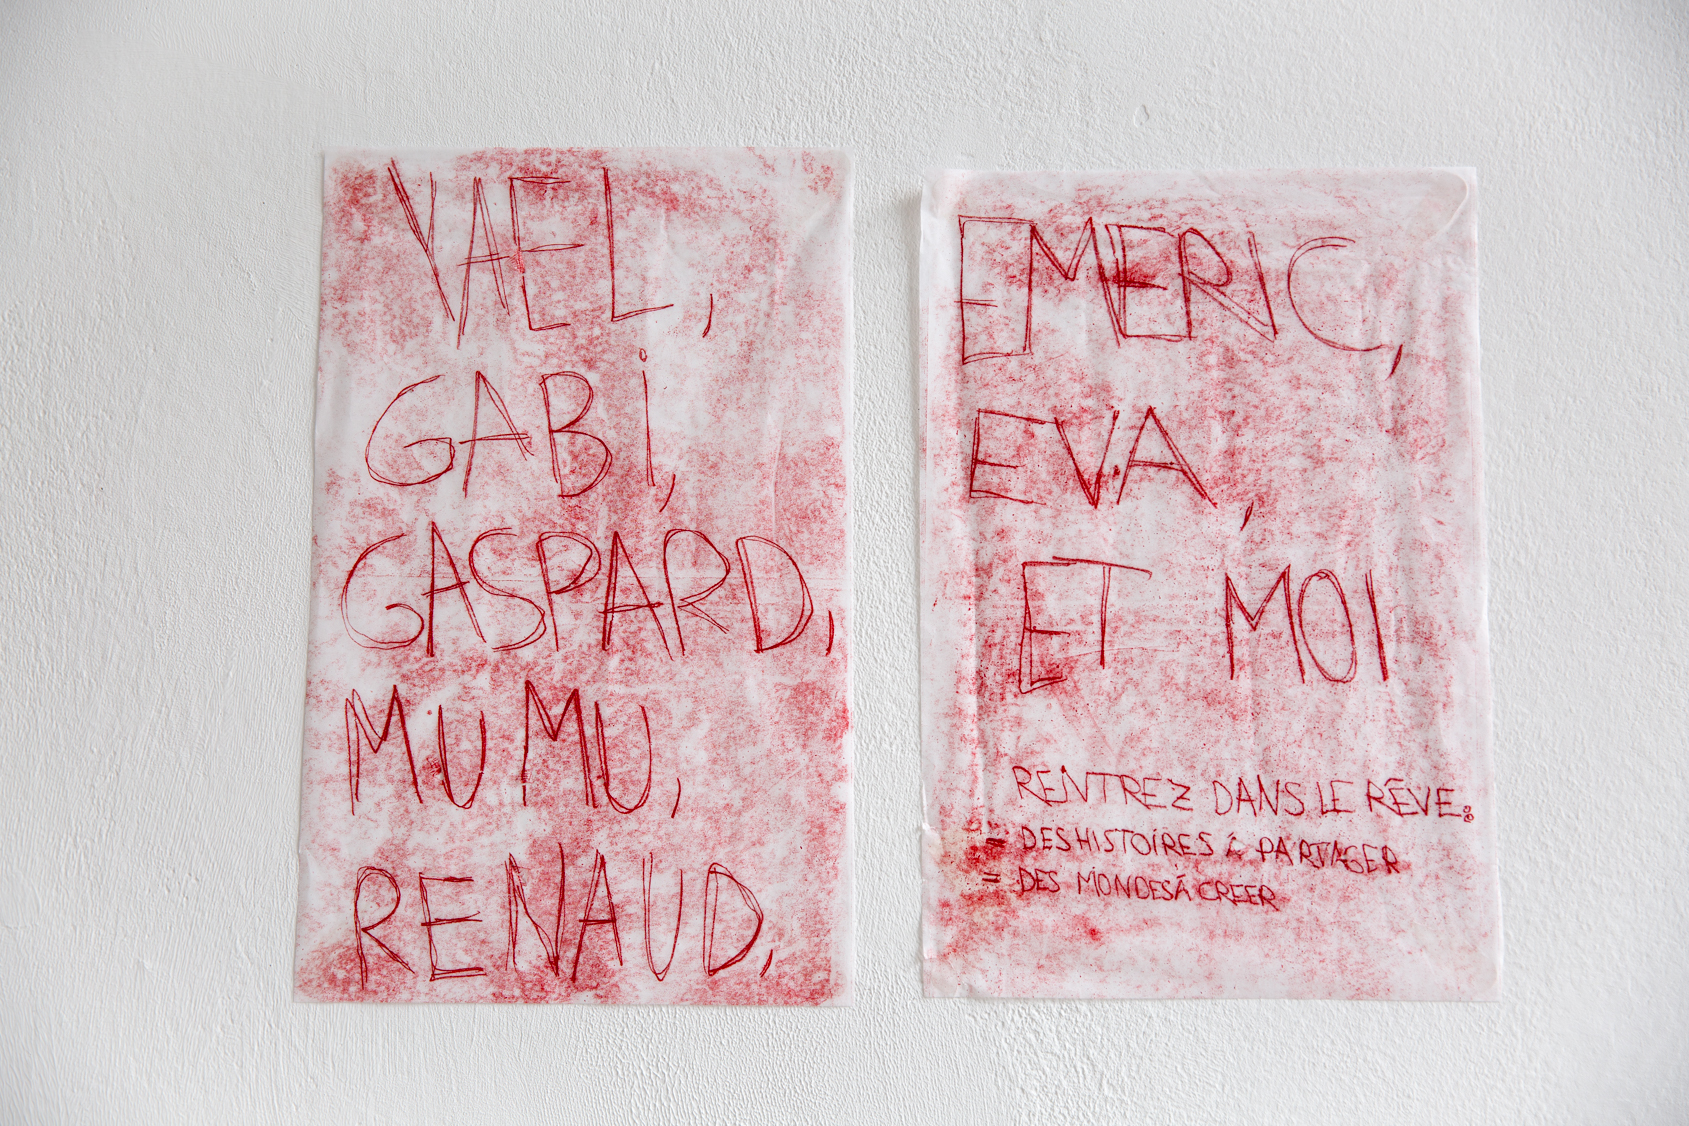 YAEL,
GABi,
GASPARD,
MUMU,
RENAUD,
EMERIC,
EVA,
ET MOI
RENTREZ DANS LE RÊVE:
= DES HISTOIRES À PARTAGER
= DES MONDES À CREER